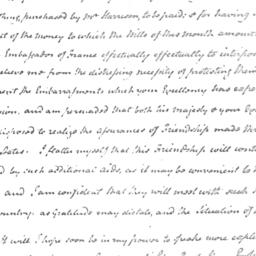 thing, purchased by Mr Harrison, to be paid; & for having
t of the money to which the Bills of this month amount
Embassador of France effectually effectually to interpose
relieve me from the distressing necessity of protesting them
ent the Embarrassments which your Excellency has expe
nion, and am persuaded that both his majesty & your
disposed to realize the assurances of Friendship made thro
States. I flatter myself that this Friendship will cont
d by such additional aids, as it may be convenient to h
and I am confident that they will meet with such
ountry, as Gratitude may dictate, and the Situation of
It will I hope soon be in my power to speake more expli